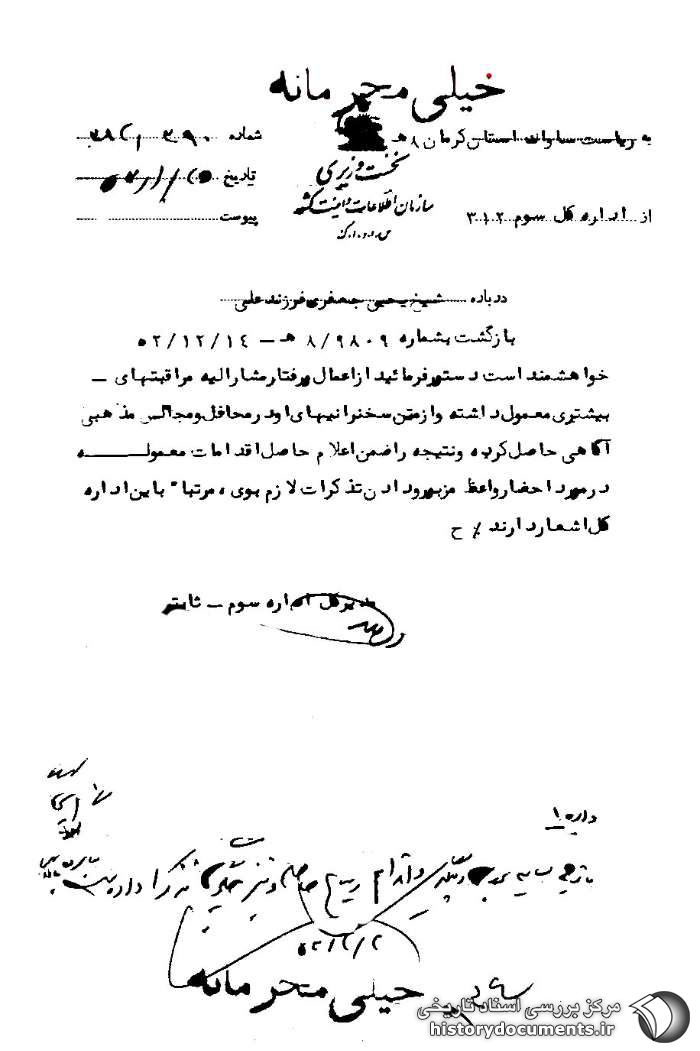 خیلی محرمانه
به ریاست ساواک استان کرمان ۸ هـ
شماره ۳۹۰
نخست وزیری
تاریخ
سازمان اطلاعات و امنیت کشور
از اداره کل سوم ۳۱۲
س.ا.و.ا.ک
پیوست
درباره شیخ یحیی جعفری فرزند علی
بازگشت بشماره ۸/۹۸۰۹ هـ – ۵۲/۱۲/۱۴
خواهشمند است دستور فرمائید از اعمال و رفتار مشارالیه مراقبتهای –
بیشتری معمول داشته و از متن سخنرانیهای او در محافل و مجالس مذهبی
آگاهی حاصل کرده و نتیجه را ضمن اعلام حاصل اقدامات معموله
در مورد احضار واعظ مزبور و دادن تذکرات لازم بوی، مرتبا" باین اداره
کل اشعار دارند٪ ح
مدیر کل اداره سوم – ثابتی
دایره ۱
۵۳/۲/۲
خیلی محرمانه
مرکز بررسی اسناد تاریخی
historydocuments.ir